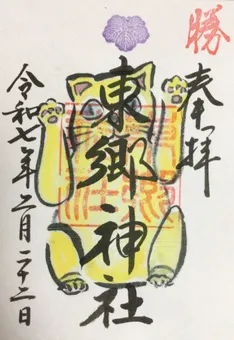 勝
奉拝
東郷神社
令和七年二月二十二日